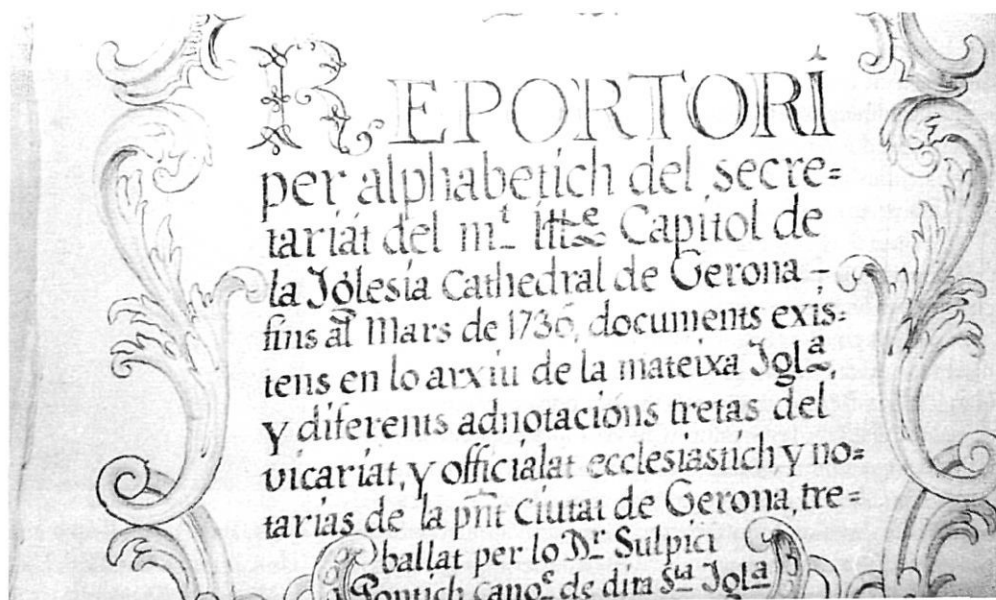 REPORTORI
per alphabetich del secre=
tariat del m.t Itt.e Capitol de
la Iglesia Cathedral de Gerona,
fins al Mars de 1736, documents exis=
tens en lo arxiu de la mateixa Igl.a,
y diferents adnotacions tretas del
vicariat, y officialat ecclesiastich y no=
tarias de la pnt Ciutat de Gerona, tre=
ballat per lo D.r Sulpici
Pontich cano.e de dita S.ta Igl.a